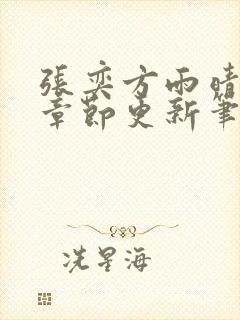 張奕方雨晴
章節更新筆
冼星海